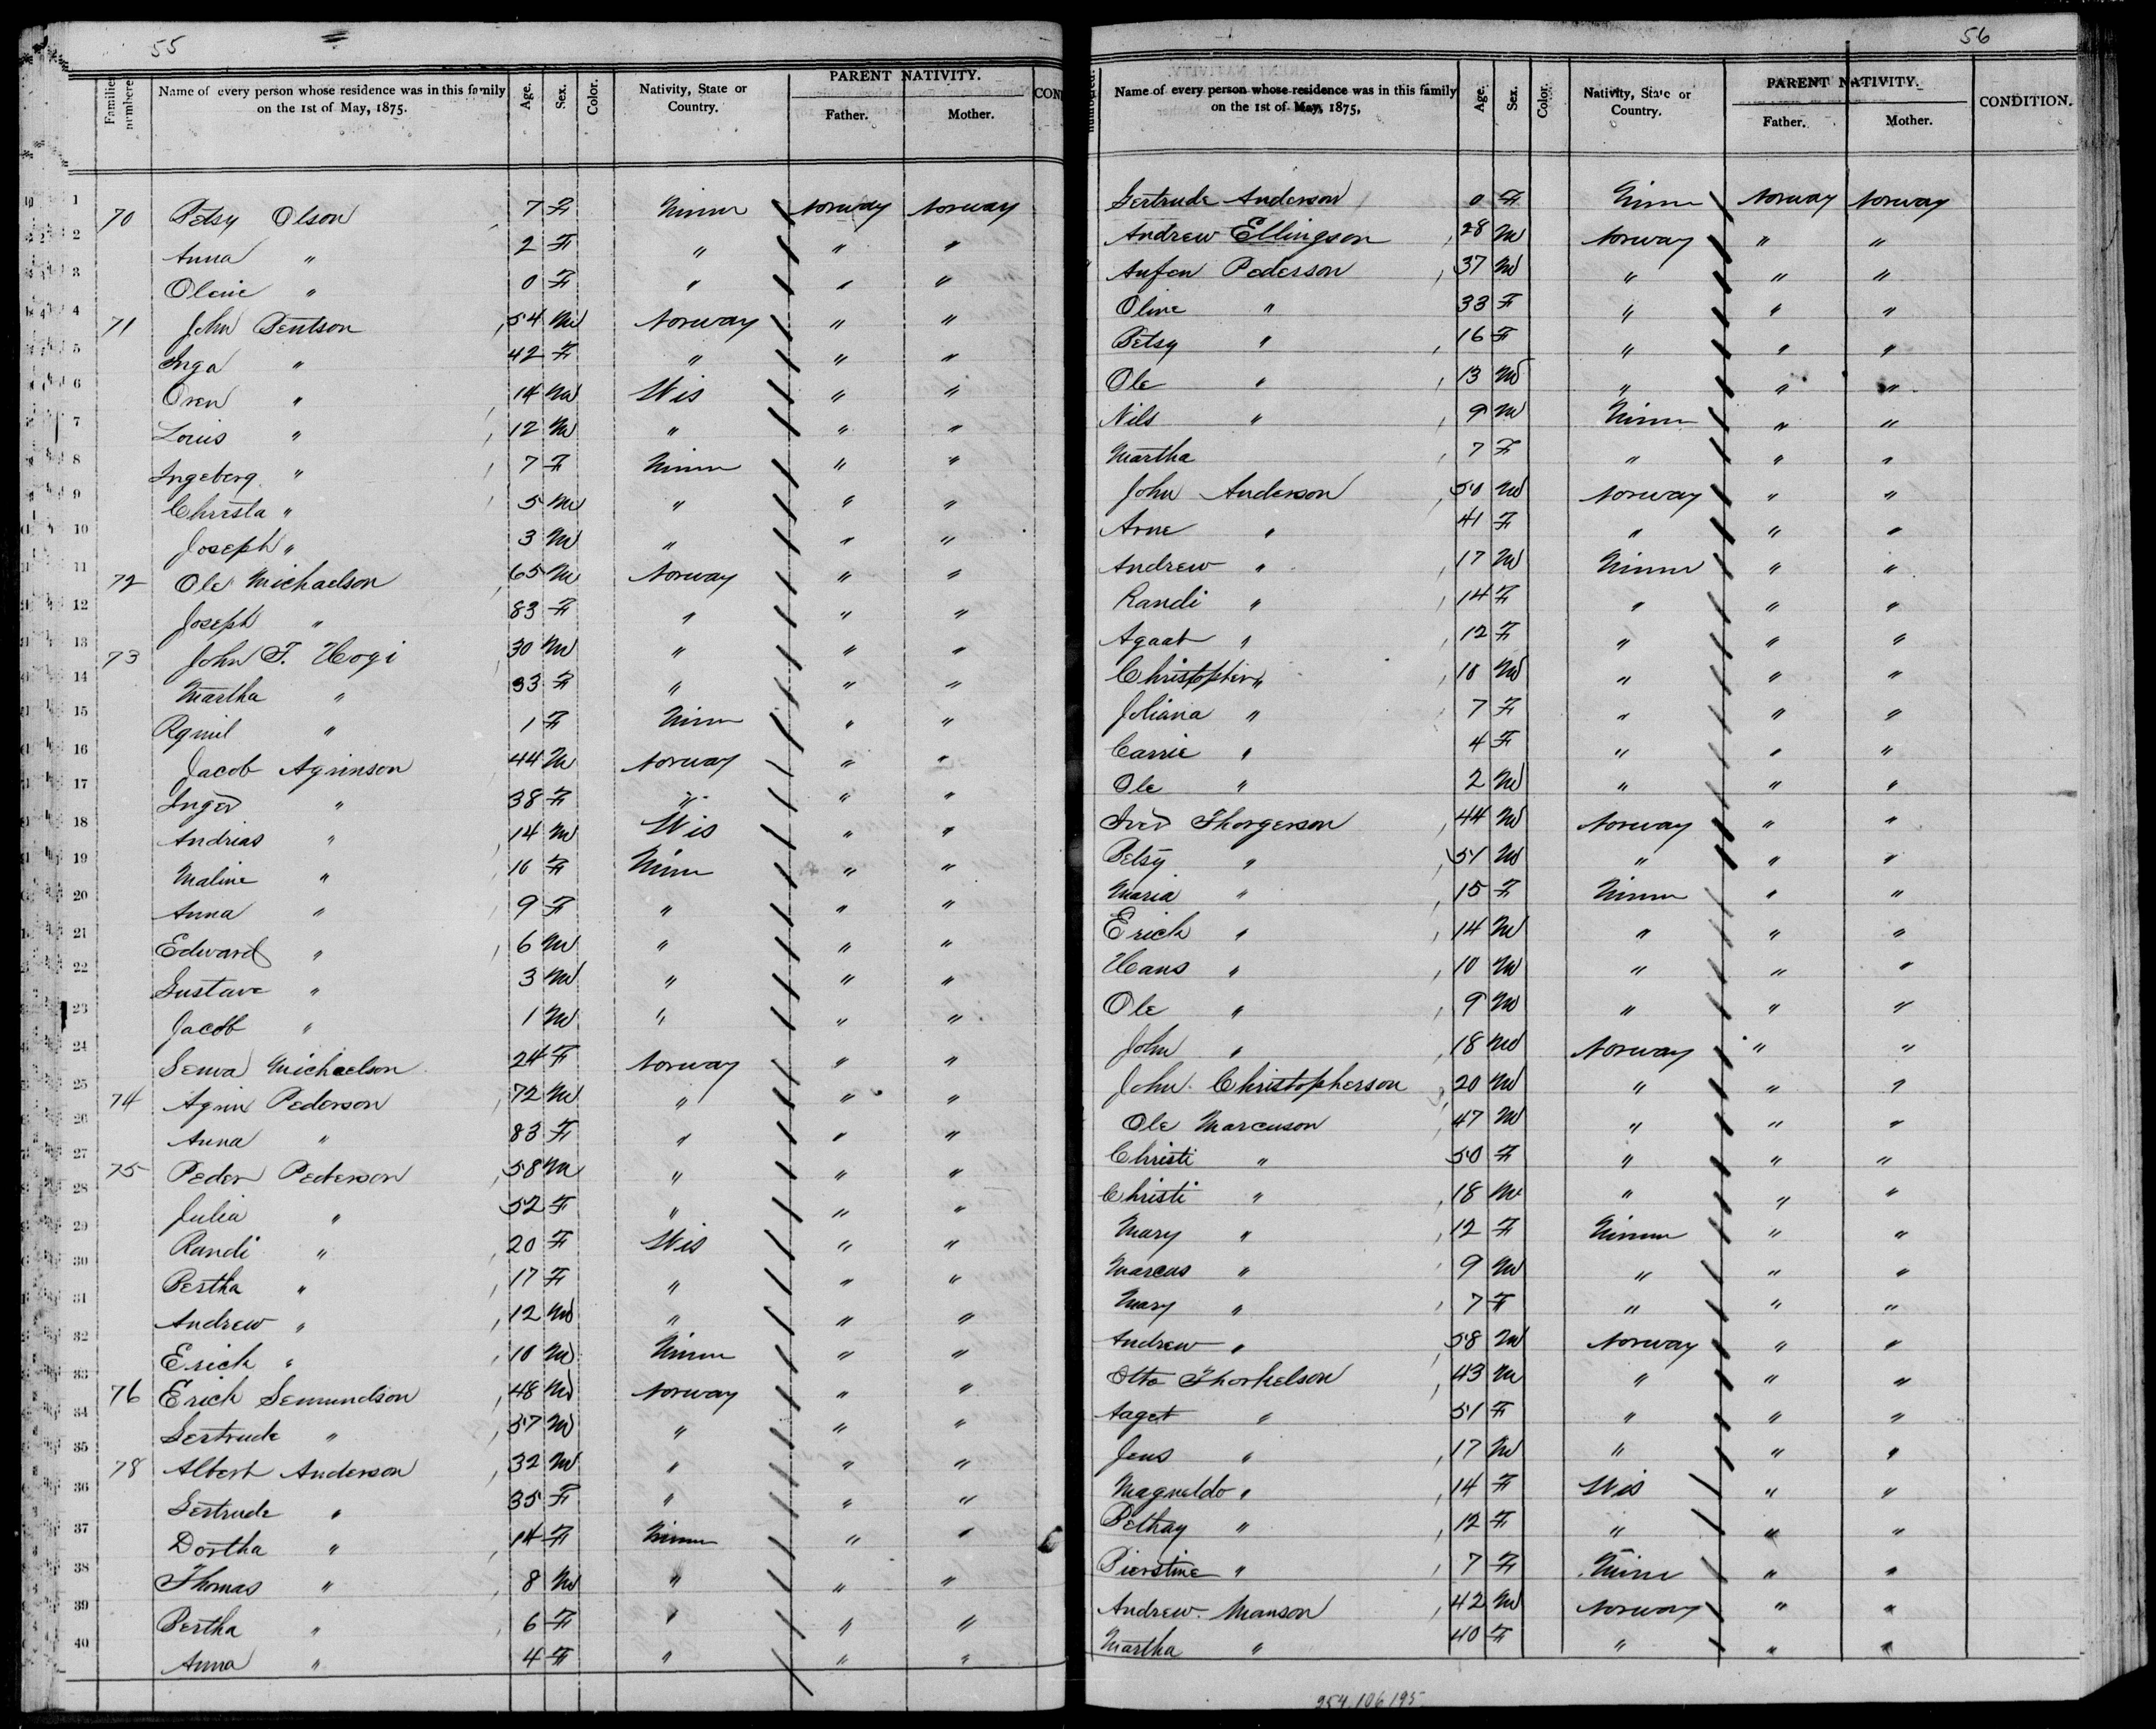 55
Families numbered.
Name of every person whose residence was in this family on the 1st of May, 1875.
Age.
Sex.
Color.
Nativity, State or Country.
PARENT NATIVITY.
Father.
Mother.
CON
1 70 Betsy Olson 7 F Minn Norway Norway
2 Anna " 2 F " " "
3 Olevie " 0 F " " "
4 71 John Bentson 54 M Norway " "
5 Inga " 42 F " " "
6 Oren " 14 M Wis " "
7 Louis " 12 M " " "
8 Ingeberg " 7 F Minn " "
9 Christa " 5 M " " "
10 Joseph " 3 M " " "
11 72 Ole Michaelson 65 M Norway " "
12 Joseph " 83 F " " "
13 73 John T. Hogi 30 M " " "
14 Martha " 33 F " " "
15 " 1 F Minn " "
16 Jacob Agrinson 44 M Norway " "
17 Inger " 38 F " " "
18 Andrias " 14 M Wis " "
19 Maline " 10 F Minn " "
20 Anna " 9 F " " "
21 Edward " 6 M " " "
22 Gustave " 3 M " " "
23 Jacob " 1 M " " "
24 Michaelson 24 F Norway " "
25 74 Pederson 72 M " " "
26 Anna " 83 F " " "
27 75 Peder Pederson 58 M " " "
28 Julia " 52 F " " "
29 Randi " 20 F Wis " "
30 Bertha " 17 F " " "
31 Andrew " 12 M " " "
32 Erick " 10 M Minn " "
33 76 Erick Semundson 48 M Norway " "
34 Gertrude " 57 M " " "
35 78 Albert Anderson 32 M " " "
36 Gertrude " 35 F " " "
37 Dortha " 14 F Minn " "
38 Thomas " 8 M " " "
39 Bertha " 6 F " " "
40 Anna " 4 F " " "
56
numbered.
Name of every person whose residence was in this family on the 1st of May, 1875,
Age.
Sex.
Color.
Nativity, State or Country.
PARENT NATIVITY.
Father.
Mother.
CONDITION.
Gertrude Anderson 0 F Minn Norway Norway
Andrew Ellingson 28 M Norway " "
Anfen Pederson 37 M " " "
Oline " 33 F " " "
Betsy " 16 F " " "
Ole " 13 M " " "
Nils " 9 M Minn " "
Martha 7 F " " "
John Anderson 50 M Norway " "
Arne " 41 F " " "
Andrew " 17 M Minn " "
Randi " 14 F " " "
Agaat " 12 F " " "
" 10 M " " "
Joliana " 7 F " " "
Carrie " 4 F " " "
Ole " 2 M " " "
Iver Thorgerson 44 M Norway " "
Betsy " 51 M " " "
Maria " 15 F Minn " "
Erick " 14 M " " "
Hans " 10 M " " "
Ole " 9 M " " "
John " 18 M Norway " "
John Christopherson 20 M " " "
Ole Marcuson 47 M " " "
Christi " 50 F " " "
Christi " 18 M " " "
Mary " 12 F Minn " "
Marcus " 9 M " " "
Mary " 7 F " " "
Andrew " 58 M Norway " "
Otto Thorkelson 43 M " " "
Aaget " 51 F " " "
Jens " 17 M " " "
Magneldo " 14 F Wis " "
Bethay " 12 F " " "
Pierstine " 7 F Minn " "
Andrew Manson 42 M Norway " "
Martha " 40 F " " "
954 106 195